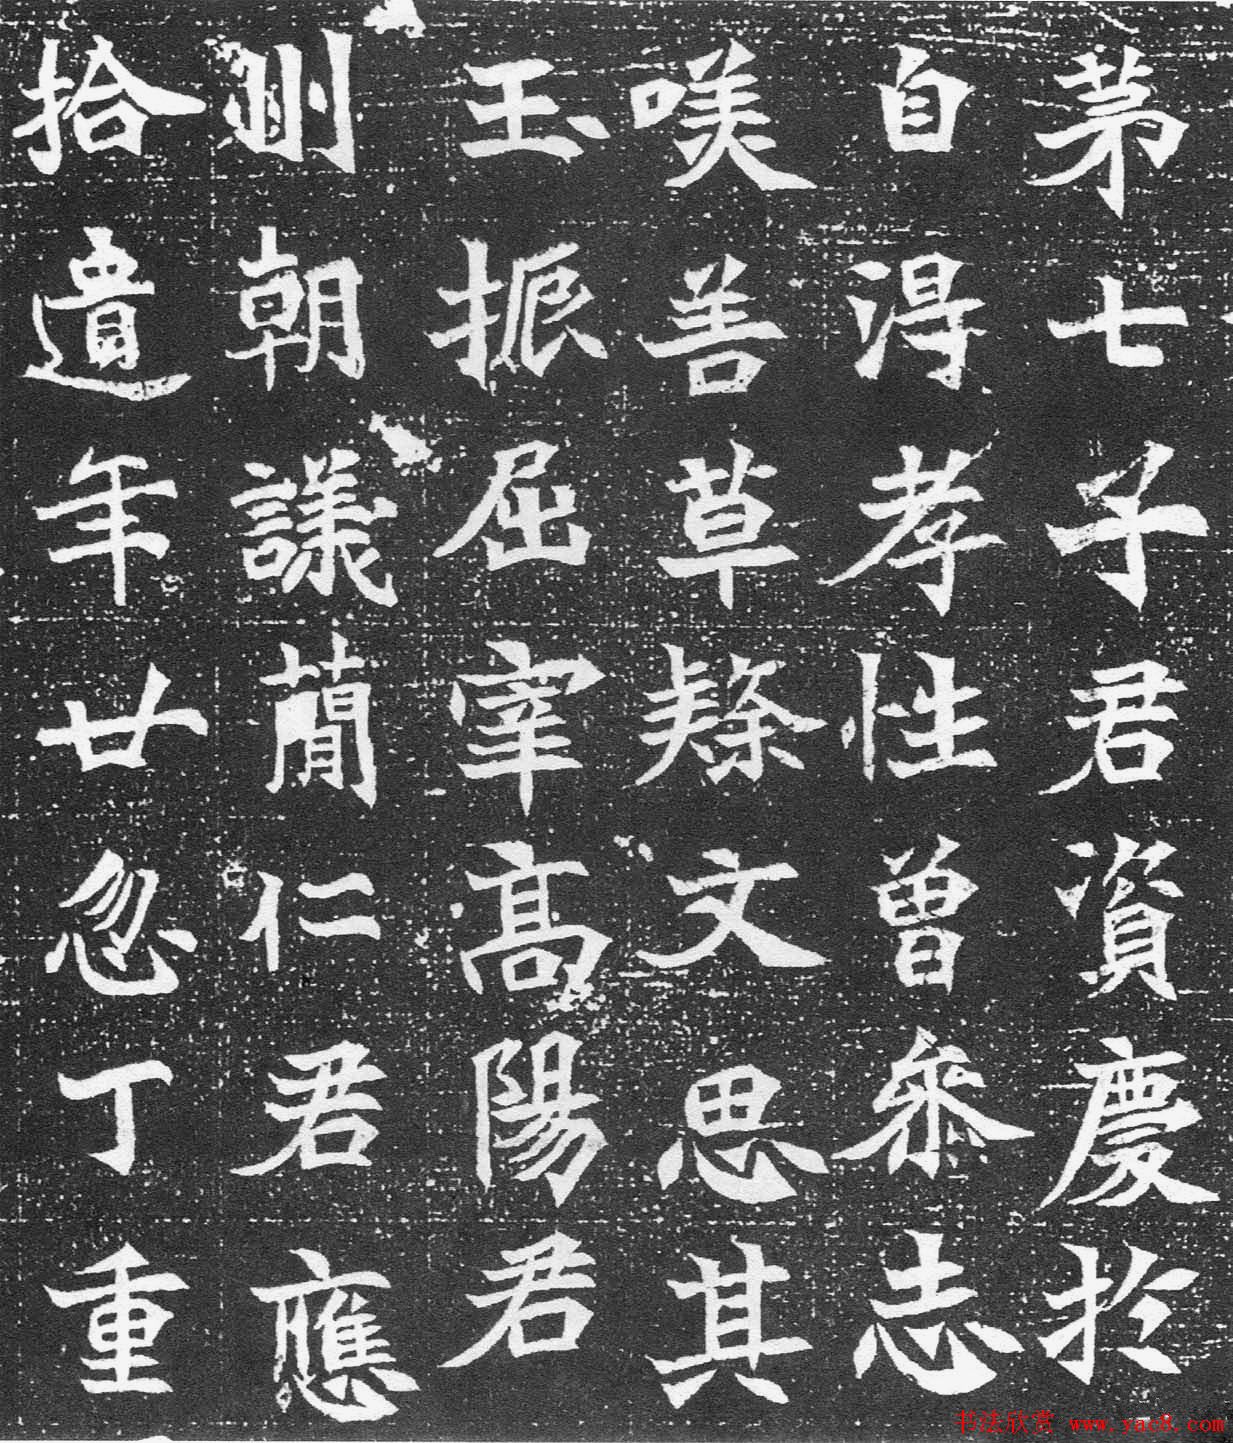 苐七子君資慶扵
自淂孝性曾叅志
𠵊善草𨽻文思其
玉振屈宰高陽君
則朝議蕳仁君應
拾遺年廿忽丁重
书法欣赏 www.yac8.com